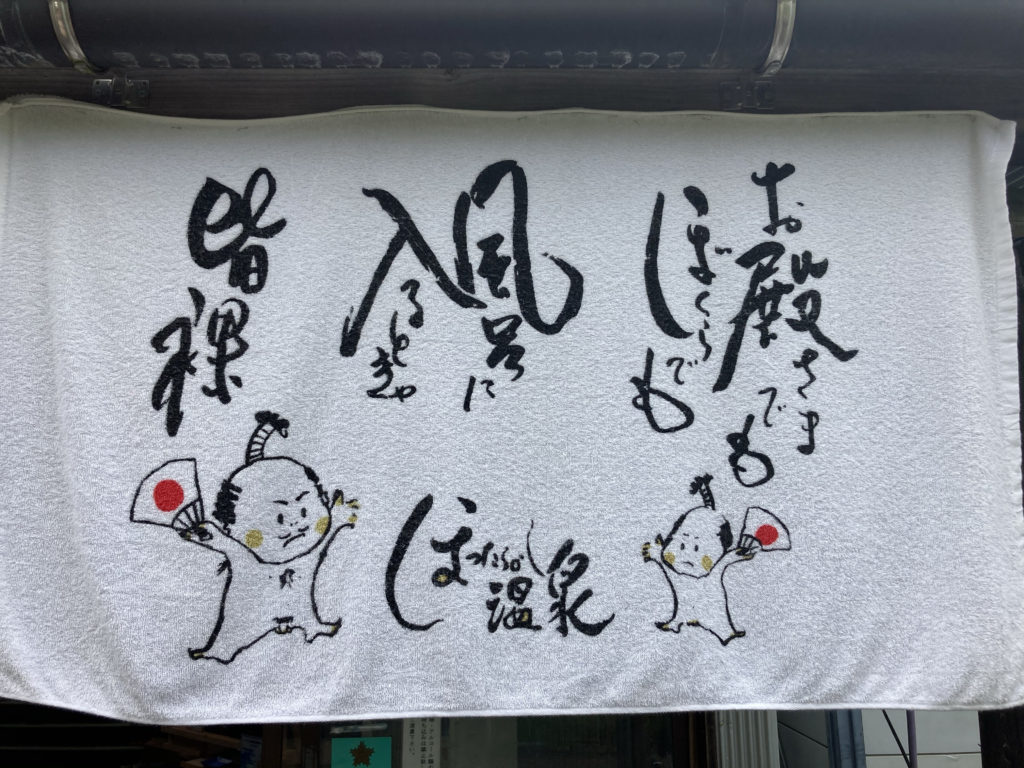 お殿さまでも
ぼくらでも
風呂に
入るときゃ
皆裸
ほったらかし温泉